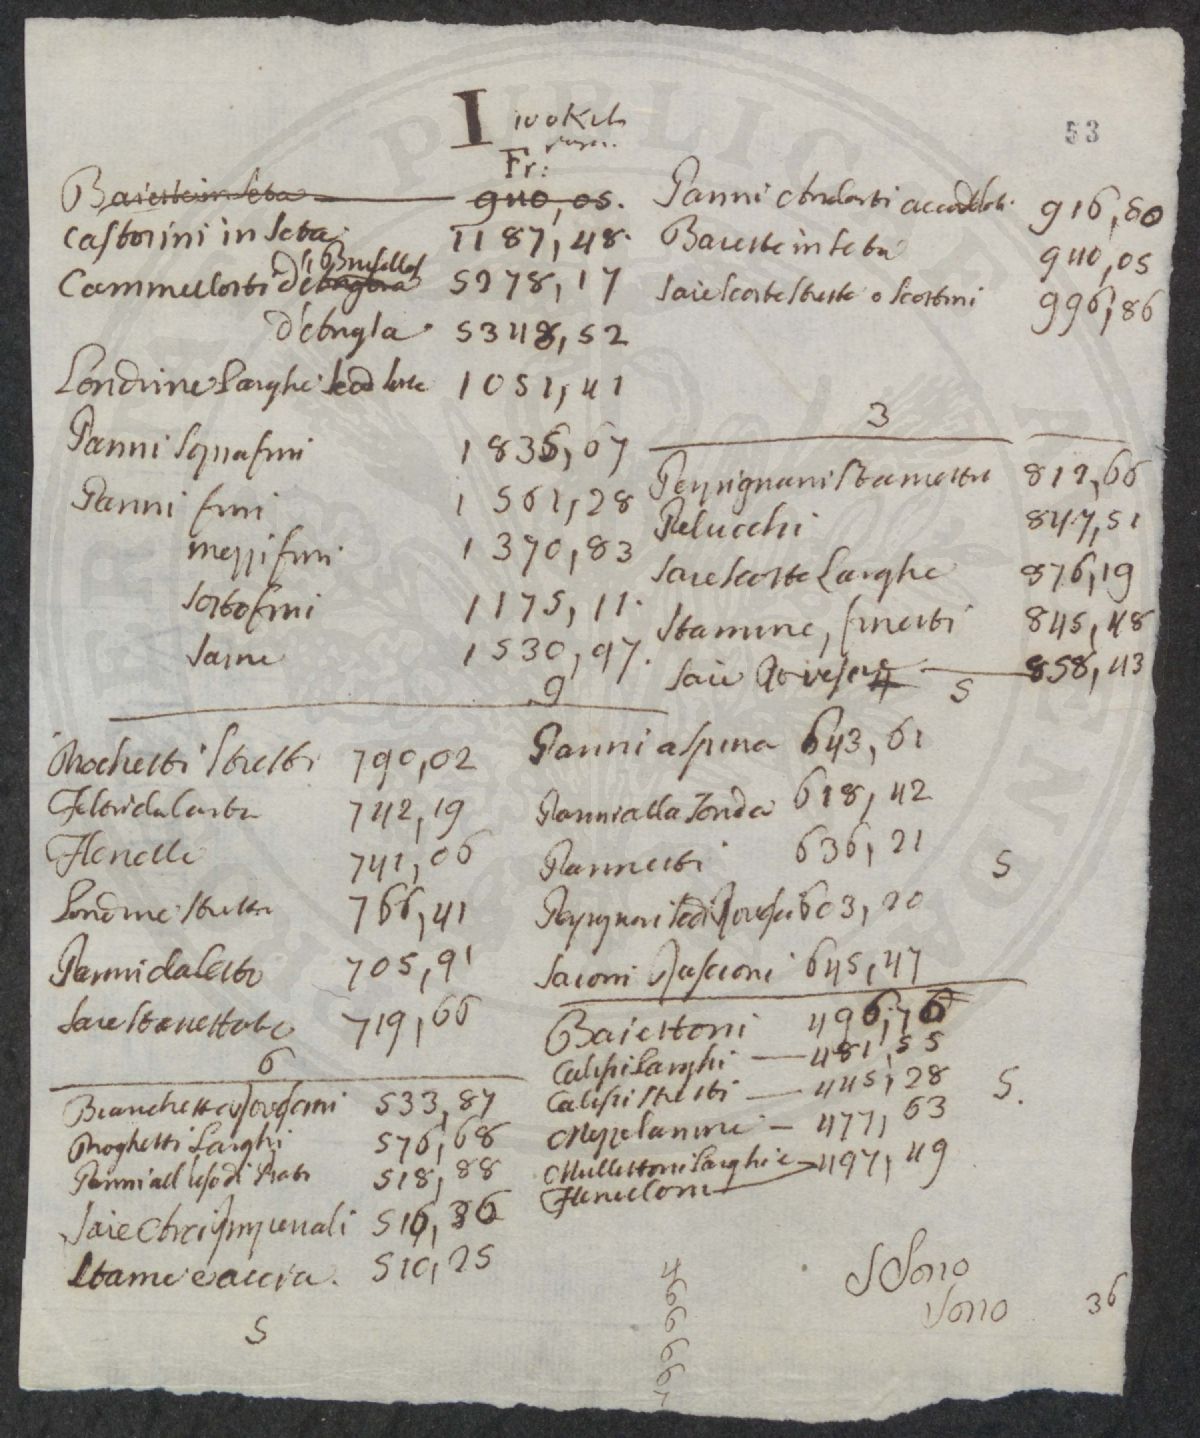 I 100 Kil.
53
Fr:
Baiette in seta 940,05.
Castorini in seta 1187,48.
di Bruselles
Cammellotti d'Engla 5278,17
d'Engla. 5348,52
Londrine Larghe 1051,41
Panni soprafini 1836,07
Panni fini 1561,28
mezzifini 1370,83
sottofini 1175,11.
1530,97.
9
Panni 916,80
Baiette in seta 940,05
Saie scotte strette o scottini 996,86
3
Perpignani stametti 812,66
Pelucchi 847,51
Saie scotte Larghe 876,19
Stamine, finetti 845,48
Saie Rovescie 858,43
5
Roghetti stretti 790,02
Feltri da Carta 742,19
Flenelle 741,06
Londrine strette 766,41
Panni da Letto 705,91
Saie 719,66
6
Panni a spina 643,61
Panni alla Tonda 618,42
Pannetti 636,21
5
Perpignani 603,20
Saioni Rascioni 645,47
Bianchette 533,87
Roghetti Larghi 576,68
Panni all uso di Prato 518,88
Saie Imperiali 516,36
Stame e accia. 510,25
5
Baiettoni 496,76
Calissi Larghi 481,55
Calissi stretti 445,28
5.
Mezzelanine 477,63
Mullettoni Larghi e 497,49
Flenelloni
4
6
6
6
6
7
Sono
Sono
36